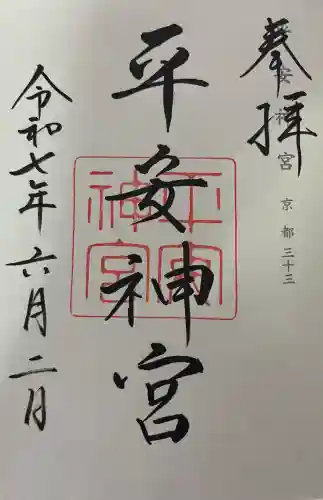 平安神宮 京都 三十三
奉拝
平安神宮
平安
神宮
令和七年 六月二日